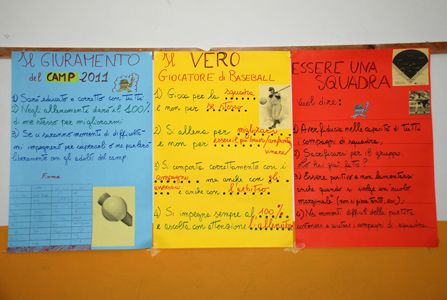 Il GIURAMENTO
del CAMP 2011
1) Sarò educato e corretto con tutti
2) Negli allenamenti darò il 100%
di me stesso per migliorarmi
3) Se ci saranno momenti di difficoltà
mi impegnerò per superarli e ne parlerò
liberamente con gli adulti del camp.
Firma
Il VERO
GIOCATORE di BASEBALL
1) Gioca per la squadra
e non per se stesso
2) Si allena per migliorare
e non per
3) Si comporta correttamente con i
compagni ma anche con gli
avversari e anche con l'arbitro
4) Si impegna sempre al 100%
e ascolta con attenzione l'allenatore
ESSERE UNA
SQUADRA
Vuol dire:
1) Aver fiducia nelle capacità di tutti
i compagni di squadra,
2) Sacrificarsi per il gruppo
3) Essere positivo e non lamentarsi
anche quando si svolge un ruolo
marginale
4) Nei momenti difficili della partita
sostenere e aiutare i compagni di squadra